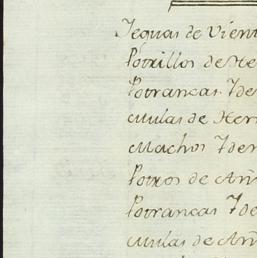 Yeguas de Vient
Potrillos de He
Potrancas Yder
Mulas de Her
Machos Yder
Potros de Añ
Potrancas Yde
Mulas de Añ